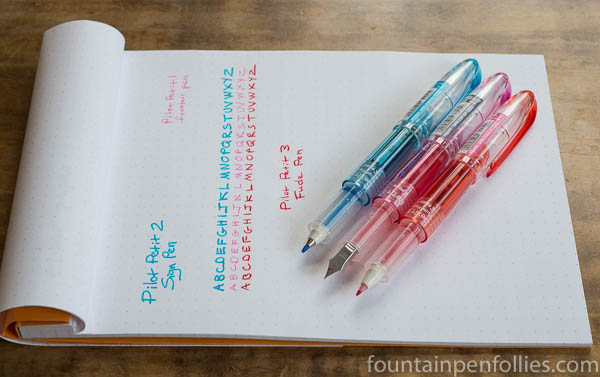 Pilot Petit 1
fountain pen
Pilot Petit 2
Sign Pen
ABCDEFGHIJKLMNOPQRSTUVWXYZ
ABCDEFGHIJKLMNOPQRSTUVWXYZ
ABCDEFGHIJKLMNOPQRSTUVWXYZ
Pilot Petit 3
Fude Pen
fountainpenfollies.com